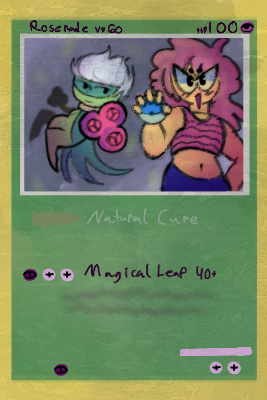 Roserade HP100
Natural Cure
Magical Leaf 40+